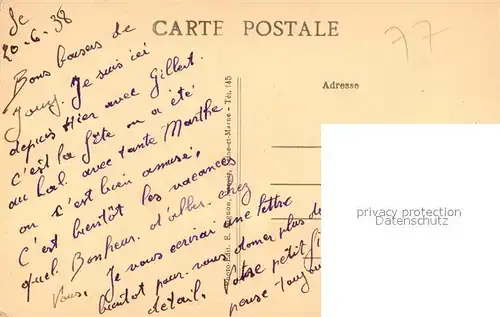 CARTE POSTALE
77
Adresse
Le
20-6-38
Bons baisers de
Jouy. Je suis ici
depuis Hier avec Gilbert.
C'est la fête on a été
au bal avec tante Marthe
on s'est bien amusé,
C'est bientôt les vacances
quel Bonheur d'aller chez
vous, Je vous ecrirai une lettre
bientôt pour vous donner plus de
détail. Votre petit
pense toujou
-et-Marne - Tél. 145
privacy protection
Datenschutz